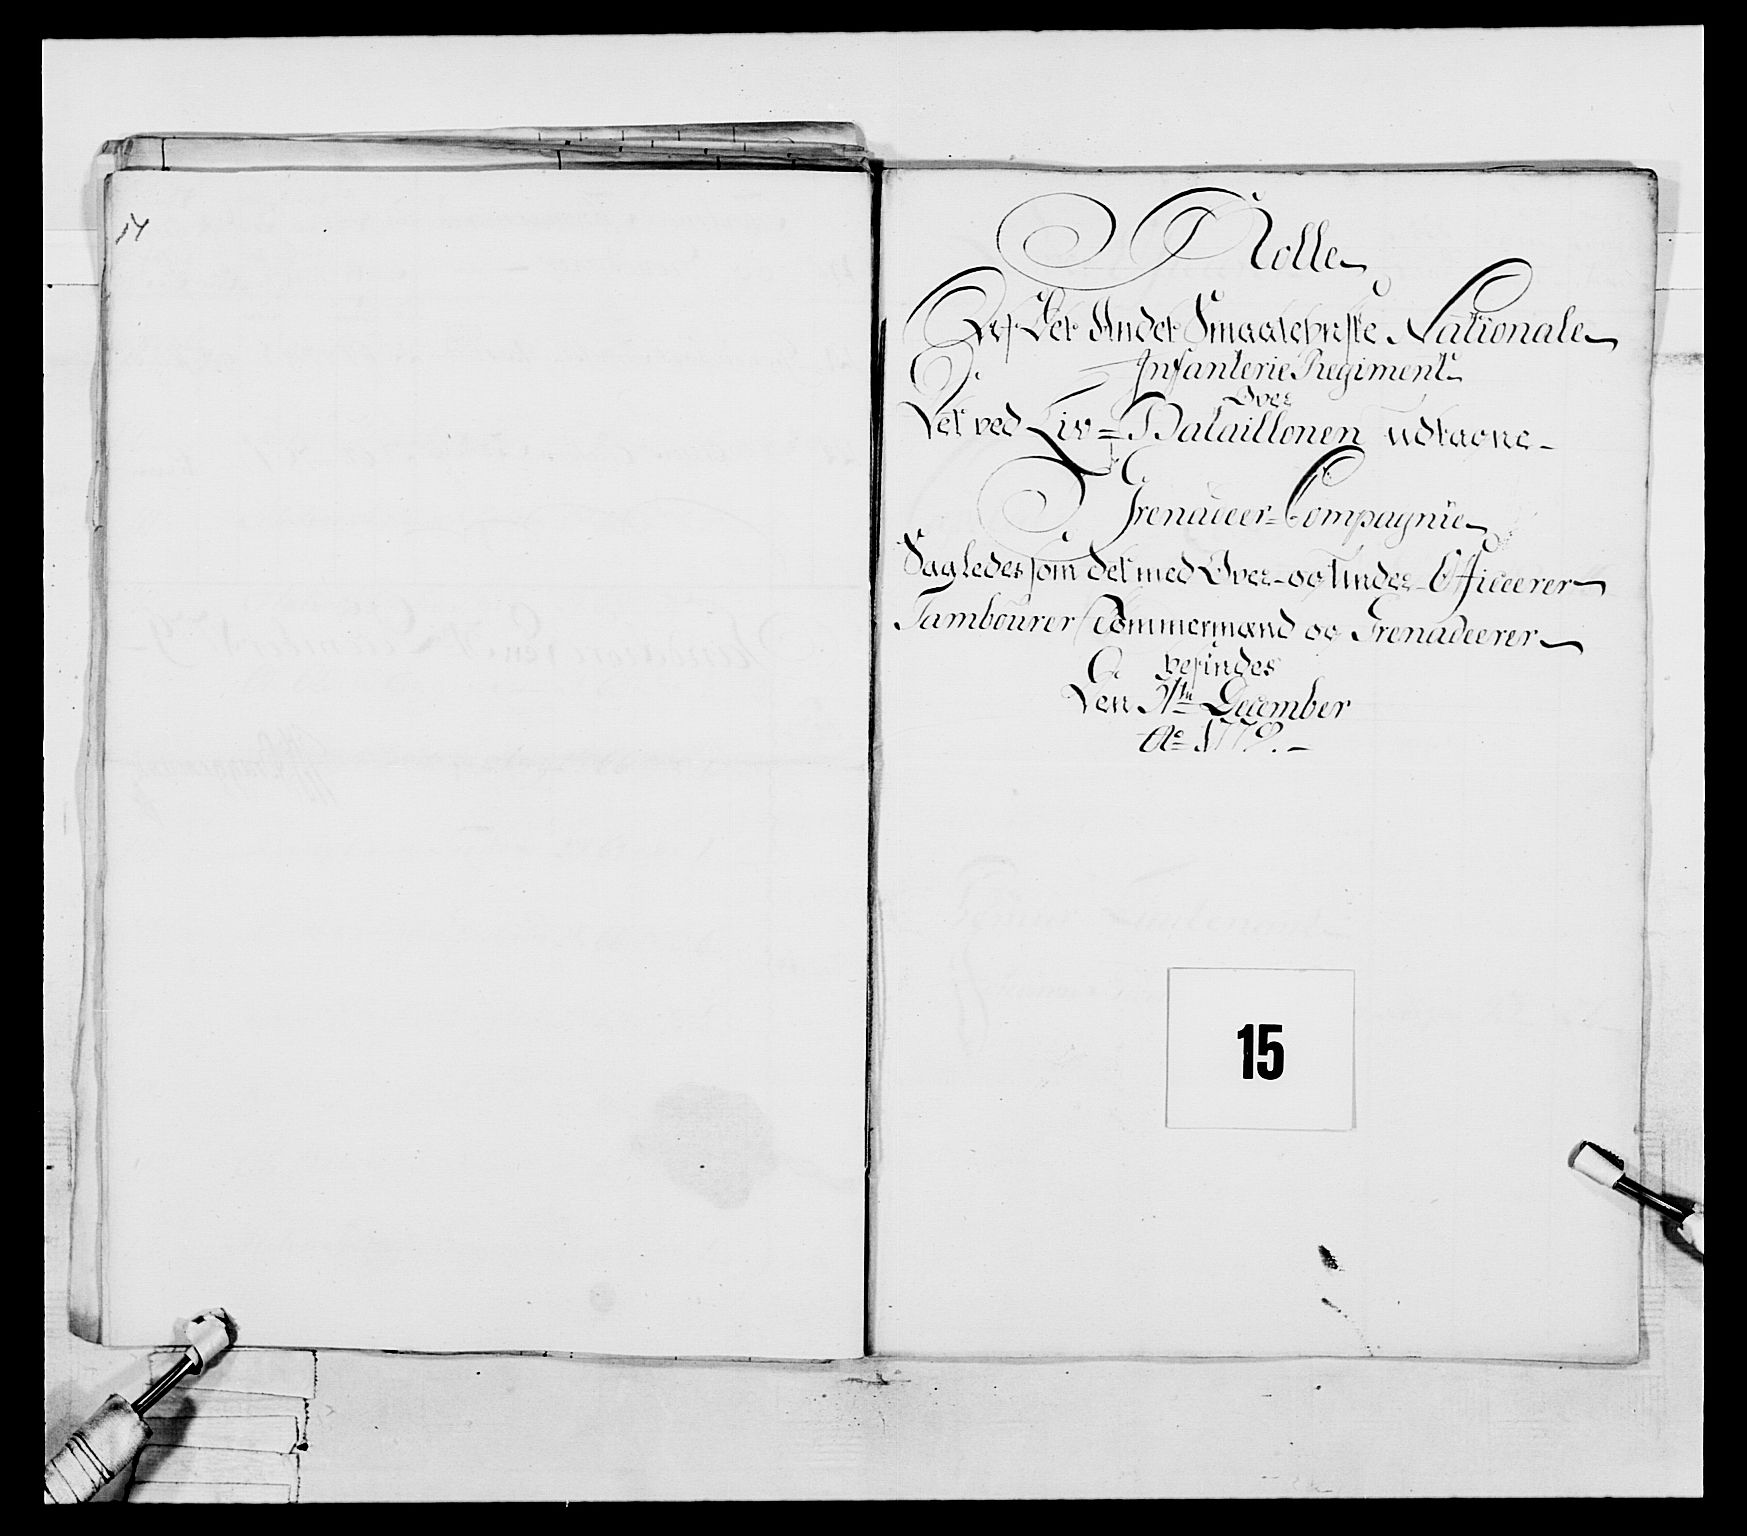 14
Rolle
Af Det Andet Smaalehnske Nationale
Infanterie Regiment
Over
Det ved Liv=Bataillonen udtagne
Grenadeer=Compagnie
Saaledes som det med Over- og Under-Officeerer
Tambourer Tømmermænd og Grenadeerer
befindes
Den December
Ao 1779.
15